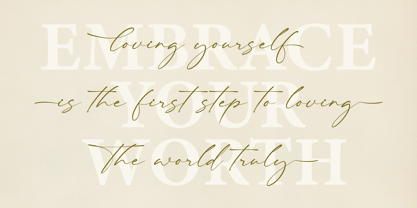 EMBRACE
loving yourself
YOUR
is the first step to loving
WORTH
the world truly